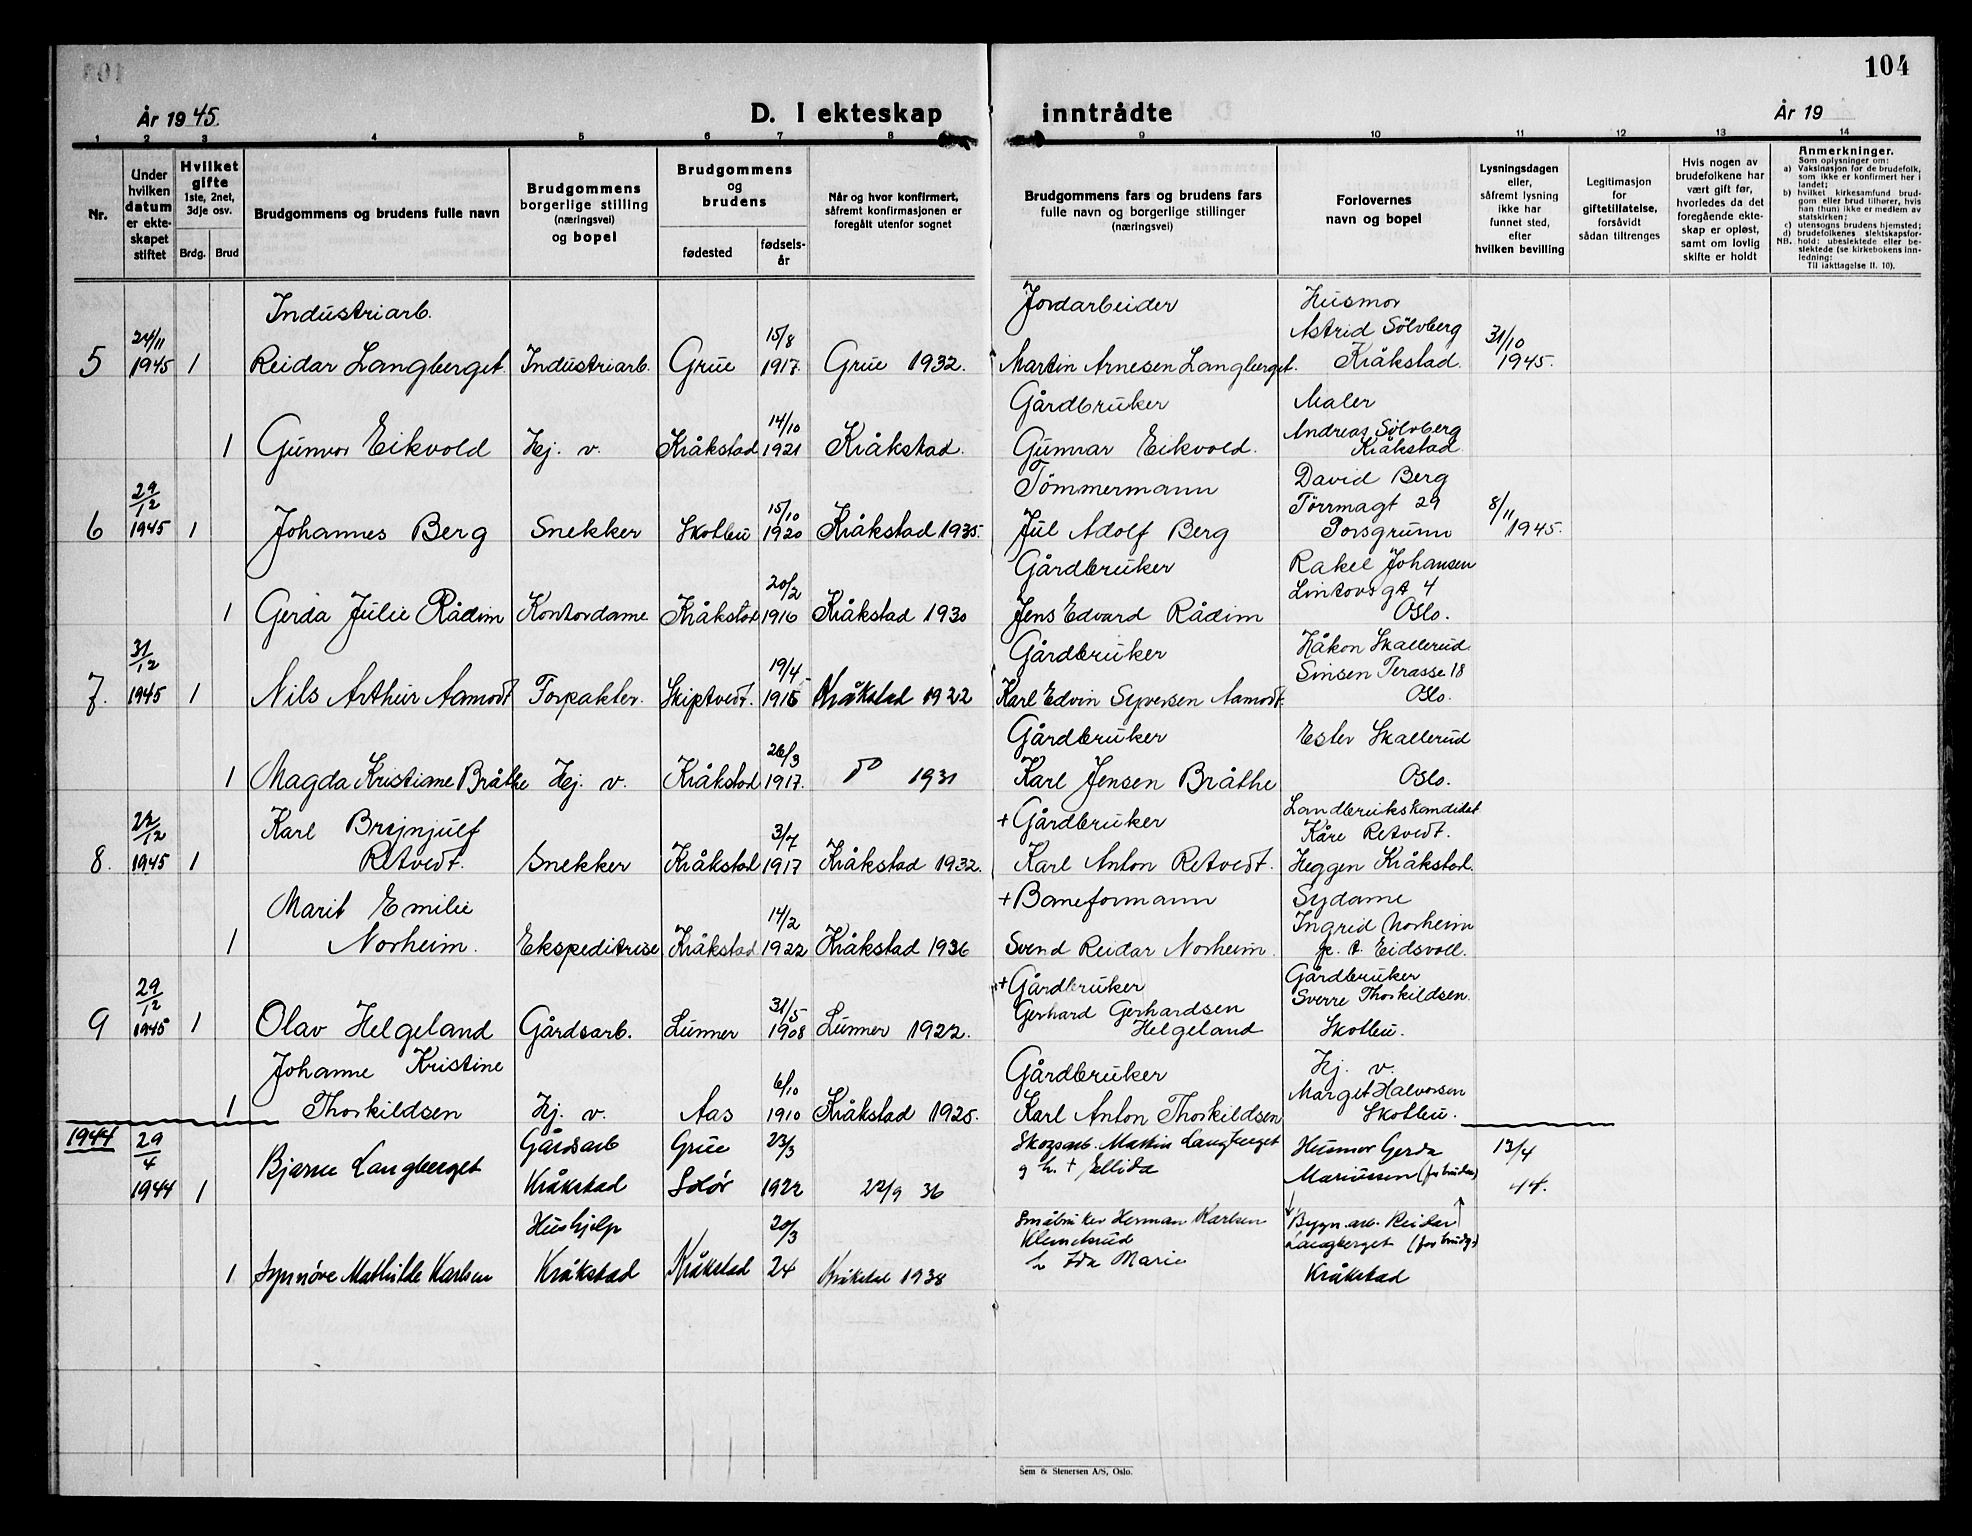 104
År 1945.
D. I ekteskap inntrådte
År 19
1 2 3 4 5 6 7 8 9 10 11 12 13 14
Nr.
Under hvilken datum er ekteskapet stiftet
Hvilket gifte 1ste, 2net, 3dje osv.
Brdg. Brud
Brudgommens og brudens fulle navn
Brudgommens borgerlige stilling (næringsvei) og bopel
Brudgommens og brudens
fødested fødsels-år
Når og hvor konfirmert, såfremt konfirmasjonen er foregått utenfor sognet
Brudgommens fars og brudens fars fulle navn og borgerlige stillinger (næringsvei)
Forlovernes navn og bopel
Lysningsdagen eller, såfremt lysning ikke har funnet sted, efter hvilken bevilling
Legitimasjon for giftetillatelse, forsåvidt sådan tiltrenges
Hvis nogen av brudefolkene har vært gift før, hvorledes da det foregående ekteskap er opløst, samt om lovlig skifte er holdt
Anmerkninger.
Som oplysninger om:
a) Vaksinasjon for de brudefolk, som ikke er konfirmert her i landet;
b) hvilket kirkesamfund brudgom eller brud tilhører, hvis han (hun) ikke er medlem av statskirken;
c) utensogns brudens hjemsted;
d) brudefolkenes slektskapsforhold: ubeslektede eller beslektede (se kirkebokens innledning:
NB. Til iakttagelse II. 10).
Industriarb. Jordarbeider Husmor
5 24/11 1945 1 Reidar Langberget Industriarb. Grue 15/8 1917 Grue 1932. Martin Arnesen Langberget. Astrid Sölvberg Kråkstad. 31/10 1945.
Gårdbruker Maler
1 Gunvor Eikvold Hj. v. Kråkstad 14/10 1921 Kråkstad. Gunnar Eikvold. Andreas Sölvberg Kråkstad
Tömmermann David Berg
6 29/12 1945 1 Johannes Berg Snekker Skotbu 15/10 1920 Kråkstad 1935. Jul Adolf Berg Törrmagt 29 Porsgrunn 8/11 1945.
Gårdbruker Rakel Johansen
1 Gerda Julie Rådim Kontordame Kråkstad 20/2 1916 Kråkstad 1930 Jens Edvard Rådim Lintovs gt 4 Oslo.
Gårdbruker Håkon Skallerud
7. 31/12 1945 1 Nils Arthur Aamodt Forpakter. Skiptvedt. 19/4 1915 Kråkstad 1922 Karl Edvin Syversen Aamodt. Sinsen Terasse 18 Oslo.
Gårdbruker Ester Skallerud
1 Magda Kristiane Bråthe Hj. v. Kråkstad 26/3 1917. do 1931 Karl Jensen Bråthe Oslo.
Karl Brynjulf + Gårdbruker Landbrukskandidat
8. 22/12 1945 1 Retvedt. Snekker Kråkstad 3/7 1917 Kråkstad 1932. Karl Anton Retvedt. Kåre Retvedt. Heggen Kråkstad.
Marit Emilie + Baneformann Sydame
1 Norheim. Ekspeditrise Kråkstad 14/2 1922 Kråkstad 1936 Svend Reidar Norheim. Ingrid Norheim p. t. Eidsvoll.
+ Gårdbruker Gårdbruker
9 29/12 1945 1 Olav Helgeland Gårdsarb. Lunner 31/5 1908 Lunner 1922. Gerhard Gerhardsen Helgeland Sverre Thorkildsen. Skotbu.
Johanne Kristine Gårdbruker Hj. v.
1 Thorkildsen Hj. v. Aas 6/10 1910 Kråkstad 1925. Karl Anton Thorkildsen Marget Halvorsen Skotbu.
1944 29/4 1944 1 Bjarne Langberget Gårdsarb Kråkstad Grue Solør 23/3 1922 22/9 36 Skogsarb. Martin Langberget g h. + Ellida Husmor Gerda Mariussen (for bruden) 13/4 44.
1 Synnöve Mathilde Karlsen Hushjelp Kråkstad Kråkstad 20/3 24 Kråkstad 1938 Småbruker Herman Karlsen Klemetsrud h Ida Marie Bygn.arb. Reidar Langberget (for brudg.) Kråkstad
Sem & Stenersen A/S, Oslo.